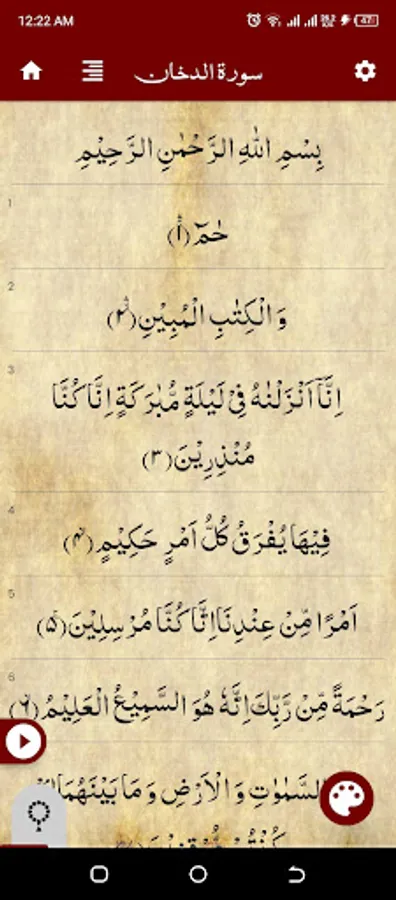 12:22 AM 47
سورة الدخان
بِسْمِ اللّٰهِ الرَّحْمٰنِ الرَّحِیْمِ
1
حٰمٓ ۚۛ(۱)
2
وَ الْكِتٰبِ الْمُبِیْنِ ۙۛ(۲)
3
اِنَّاۤ اَنْزَلْنٰهُ فِیْ لَیْلَةٍ مُّبٰرَكَةٍ اِنَّا كُنَّا
مُنْذِرِیْنَ(۳)
4
فِیْهَا یُفْرَقُ كُلُّ اَمْرٍ حَكِیْمٍ ۙ(۴)
5
اَمْرًا مِّنْ عِنْدِنَا ؕ اِنَّا كُنَّا مُرْسِلِیْنَ ۚ(۵)
6
رَحْمَةً مِّنْ رَّبِّكَ ؕ اِنَّهٗ هُوَ السَّمِیْعُ الْعَلِیْمُ ۙ(۶)
السَّمٰوٰتِ وَ الْاَرْضِ وَ مَا بَیْنَهُمَا